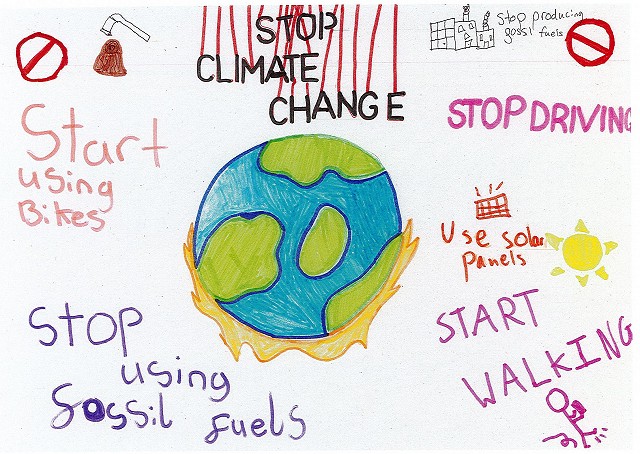 STOP
CLIMATE
CHANGE
Stop producing
fossil fuels
Start
using
Bikes
STOP DRIVING
Use solar
panels
STOP
using
fossil fuels
START
WALKING